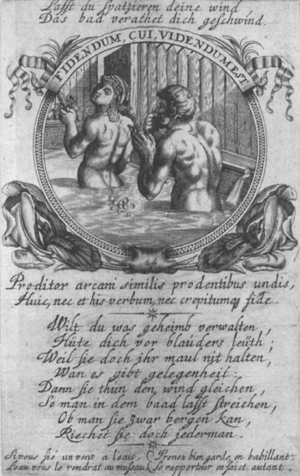 Lasst du spatzieren deine wind
Das bad verathet dich geschwind.
FIDENDUM, CUI, VIDENDUM EST
Proditor arcani similis prodentibus undis,
Huic, nec et his verbum, nec crepitumq, fide.
Wilt du was geheimb verwalten,
Hüte dich vor blauders leüth;
Weil sie doch jhr maul nit halten,
Wan es gibt gelegenheit:
Dann sie thun den, wind gleichen,
So man in dem baad lasst streichen,
Ob man sie zwar bergen kan,
Riechet sie doch jederman.
Si vous fié un vent a leau,
Leau vous le rendrat au museau
Prenes bien garde, en babillant
Se rapporteur en fait autant.